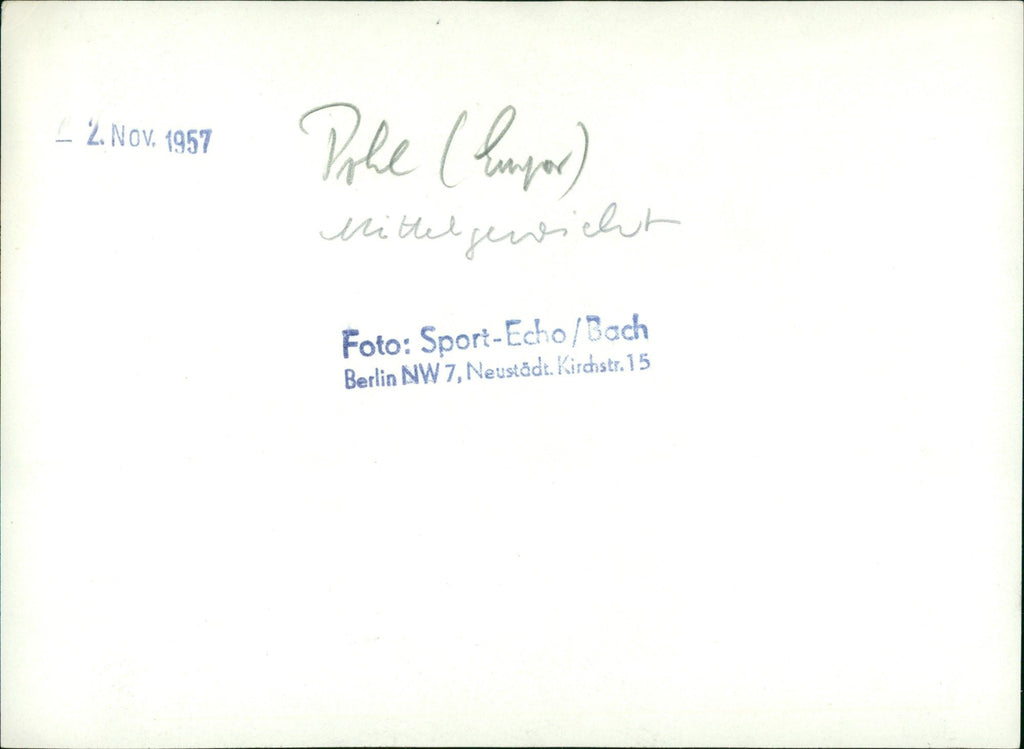 2. Nov. 1957
Pohl (Empor)
Mittelgewicht
Foto: Sport-Echo/Bach
Berlin NW 7, Neustädt. Kirchstr. 15